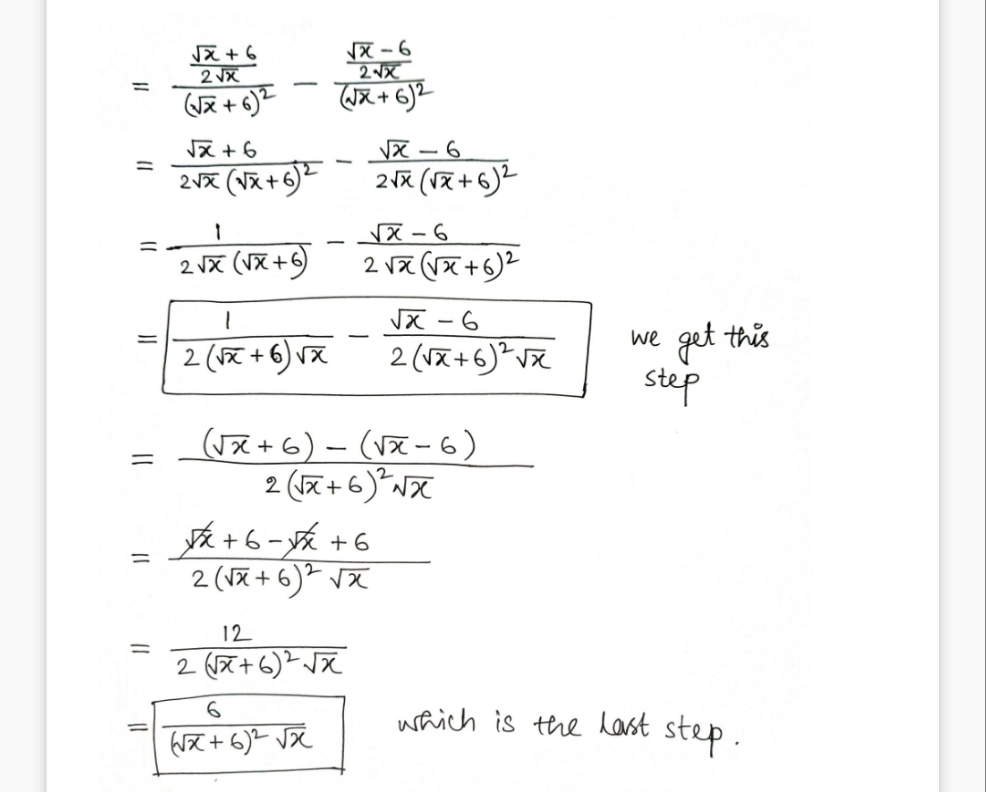 = \frac{\frac{√x + 6}{2√x}}{(√x + 6)^2} - \frac{\frac{√x - 6}{2√x}}{(√x + 6)^2}
= \frac{√x + 6}{2√x (√x + 6)^2} - \frac{√x - 6}{2√x (√x + 6)^2}
= \frac{1}{2√x (√x + 6)} - \frac{√x - 6}{2√x (√x + 6)^2}
= \frac{1}{2(√x + 6)√x} - \frac{√x - 6}{2(√x + 6)^2 √x} we get this
step
= \frac{(√x + 6) - (√x - 6)}{2(√x + 6)^2 √x}
= \frac{√x + 6 - √x + 6}{2(√x + 6)^2 √x}
= \frac{12}{2(√x + 6)^2 √x}
= \frac{6}{(√x + 6)^2 √x} which is the last step.